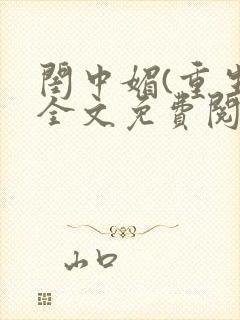 閨中媚(重生
全文免費閱
山口